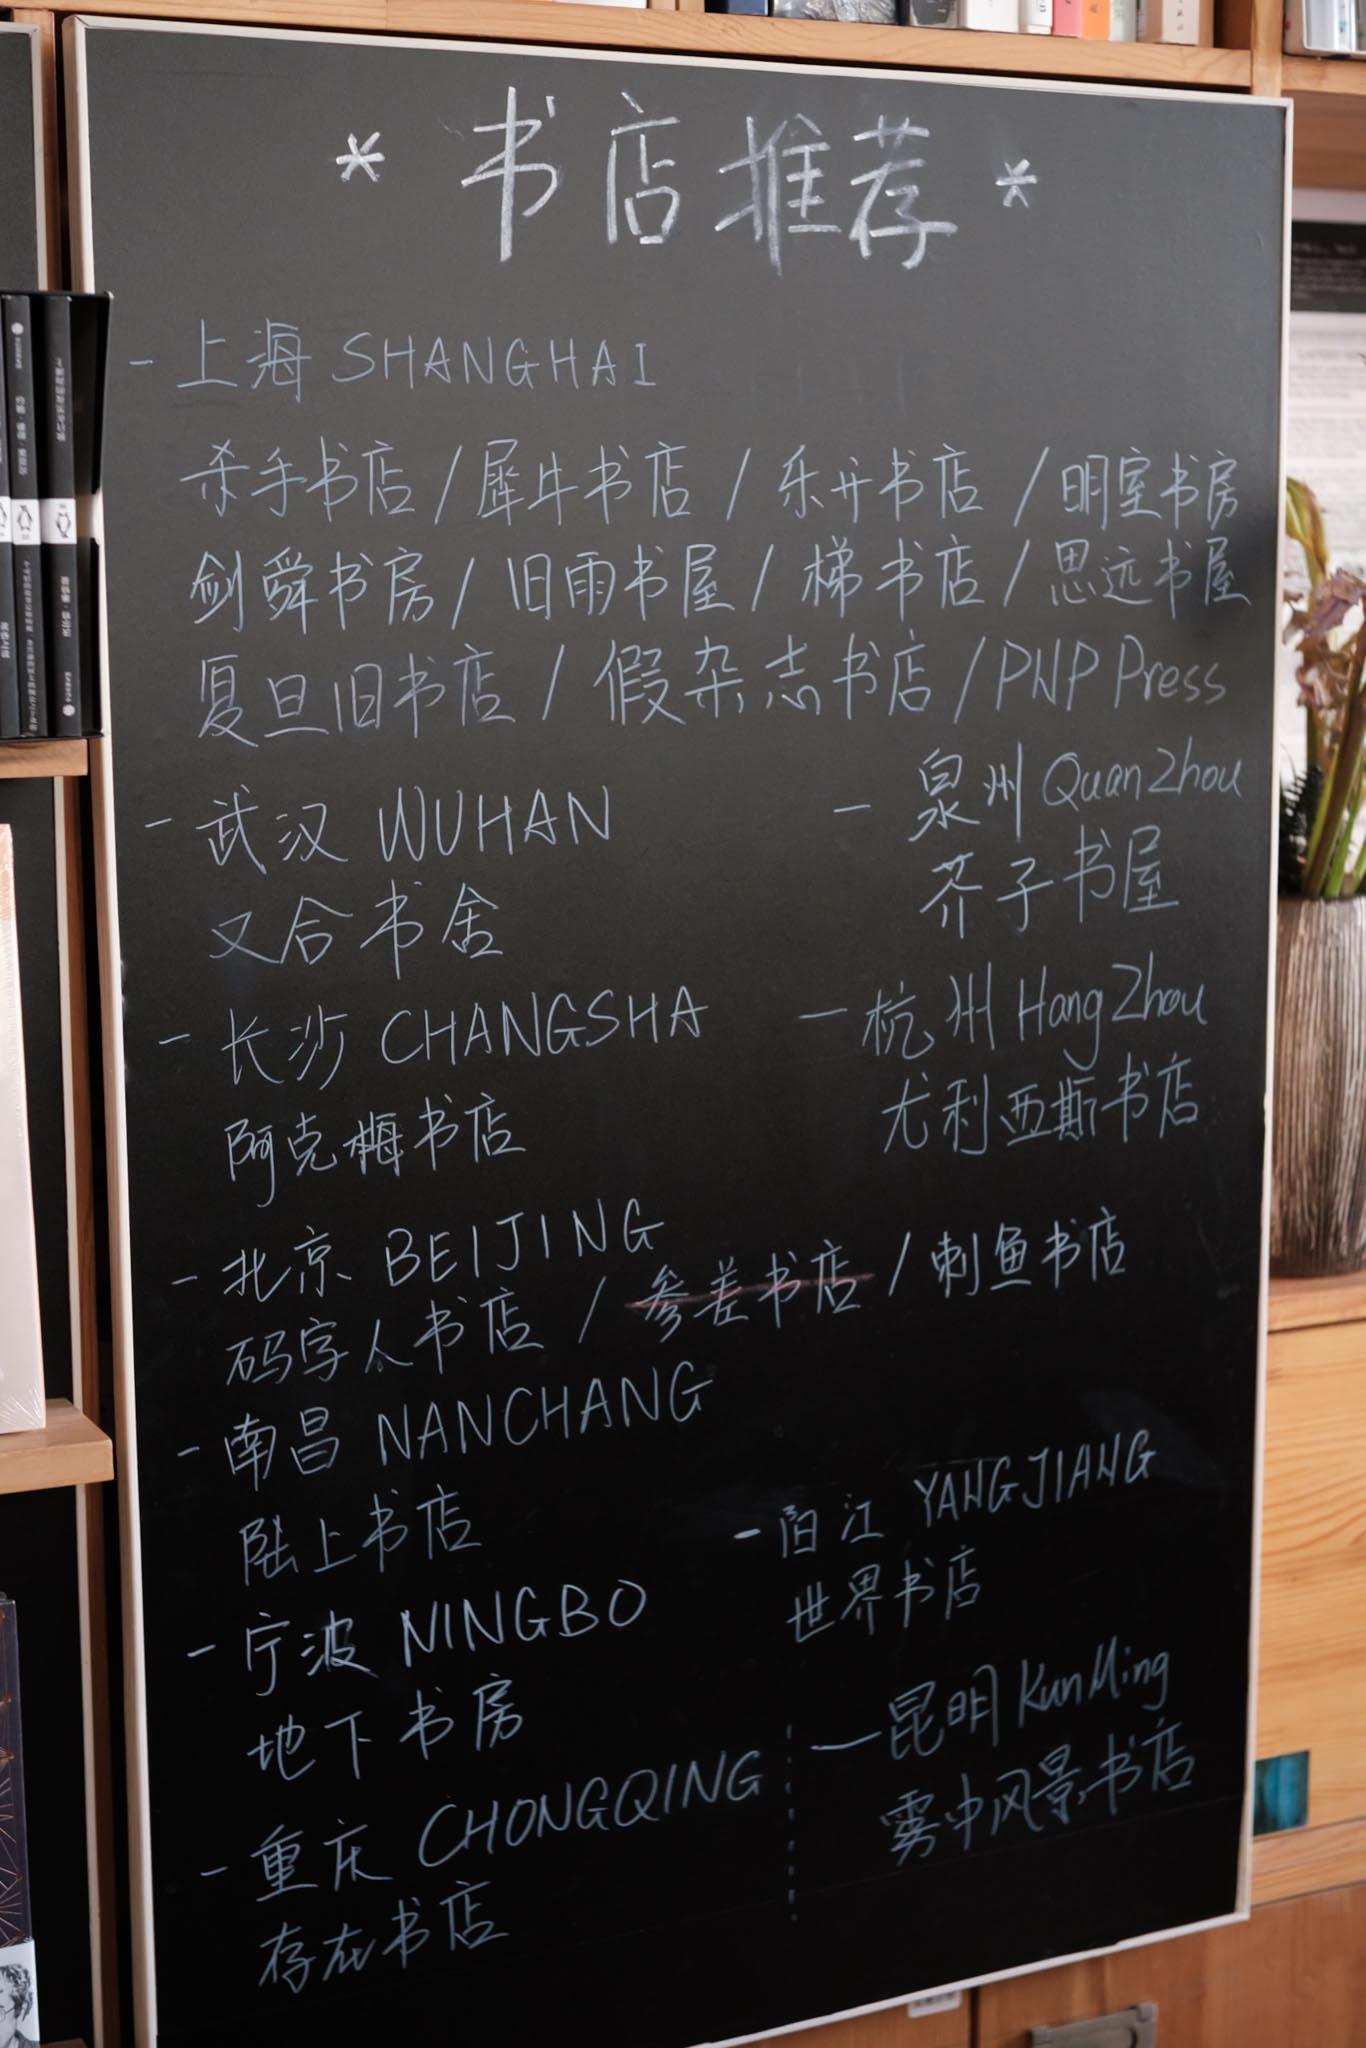 * 书店推荐 *
- 上海 SHANGHAI
杀手书店 / 犀牛书店 / 乐开书店 / 明室书房
剑舜书房 / 旧雨书屋 / 梯书店 / 思远书屋
复旦旧书店 / 假杂志书店 / PNP Press
- 武汉 WUHAN
又合书舍
- 泉州 QuanZhou
芥子书屋
- 长沙 CHANGSHA
阿克梅书店
- 杭州 HangZhou
尤利西斯书店
- 北京 BEIJING
码字人书店 / 参差书店 / 刺鱼书店
- 南昌 NANCHANG
陆上书店
- 阳江 YANGJIANG
世界书店
- 宁波 NINGBO
地下书房
- 昆明 KunMing
雾中风景书店
- 重庆 CHONGQING
存在书店